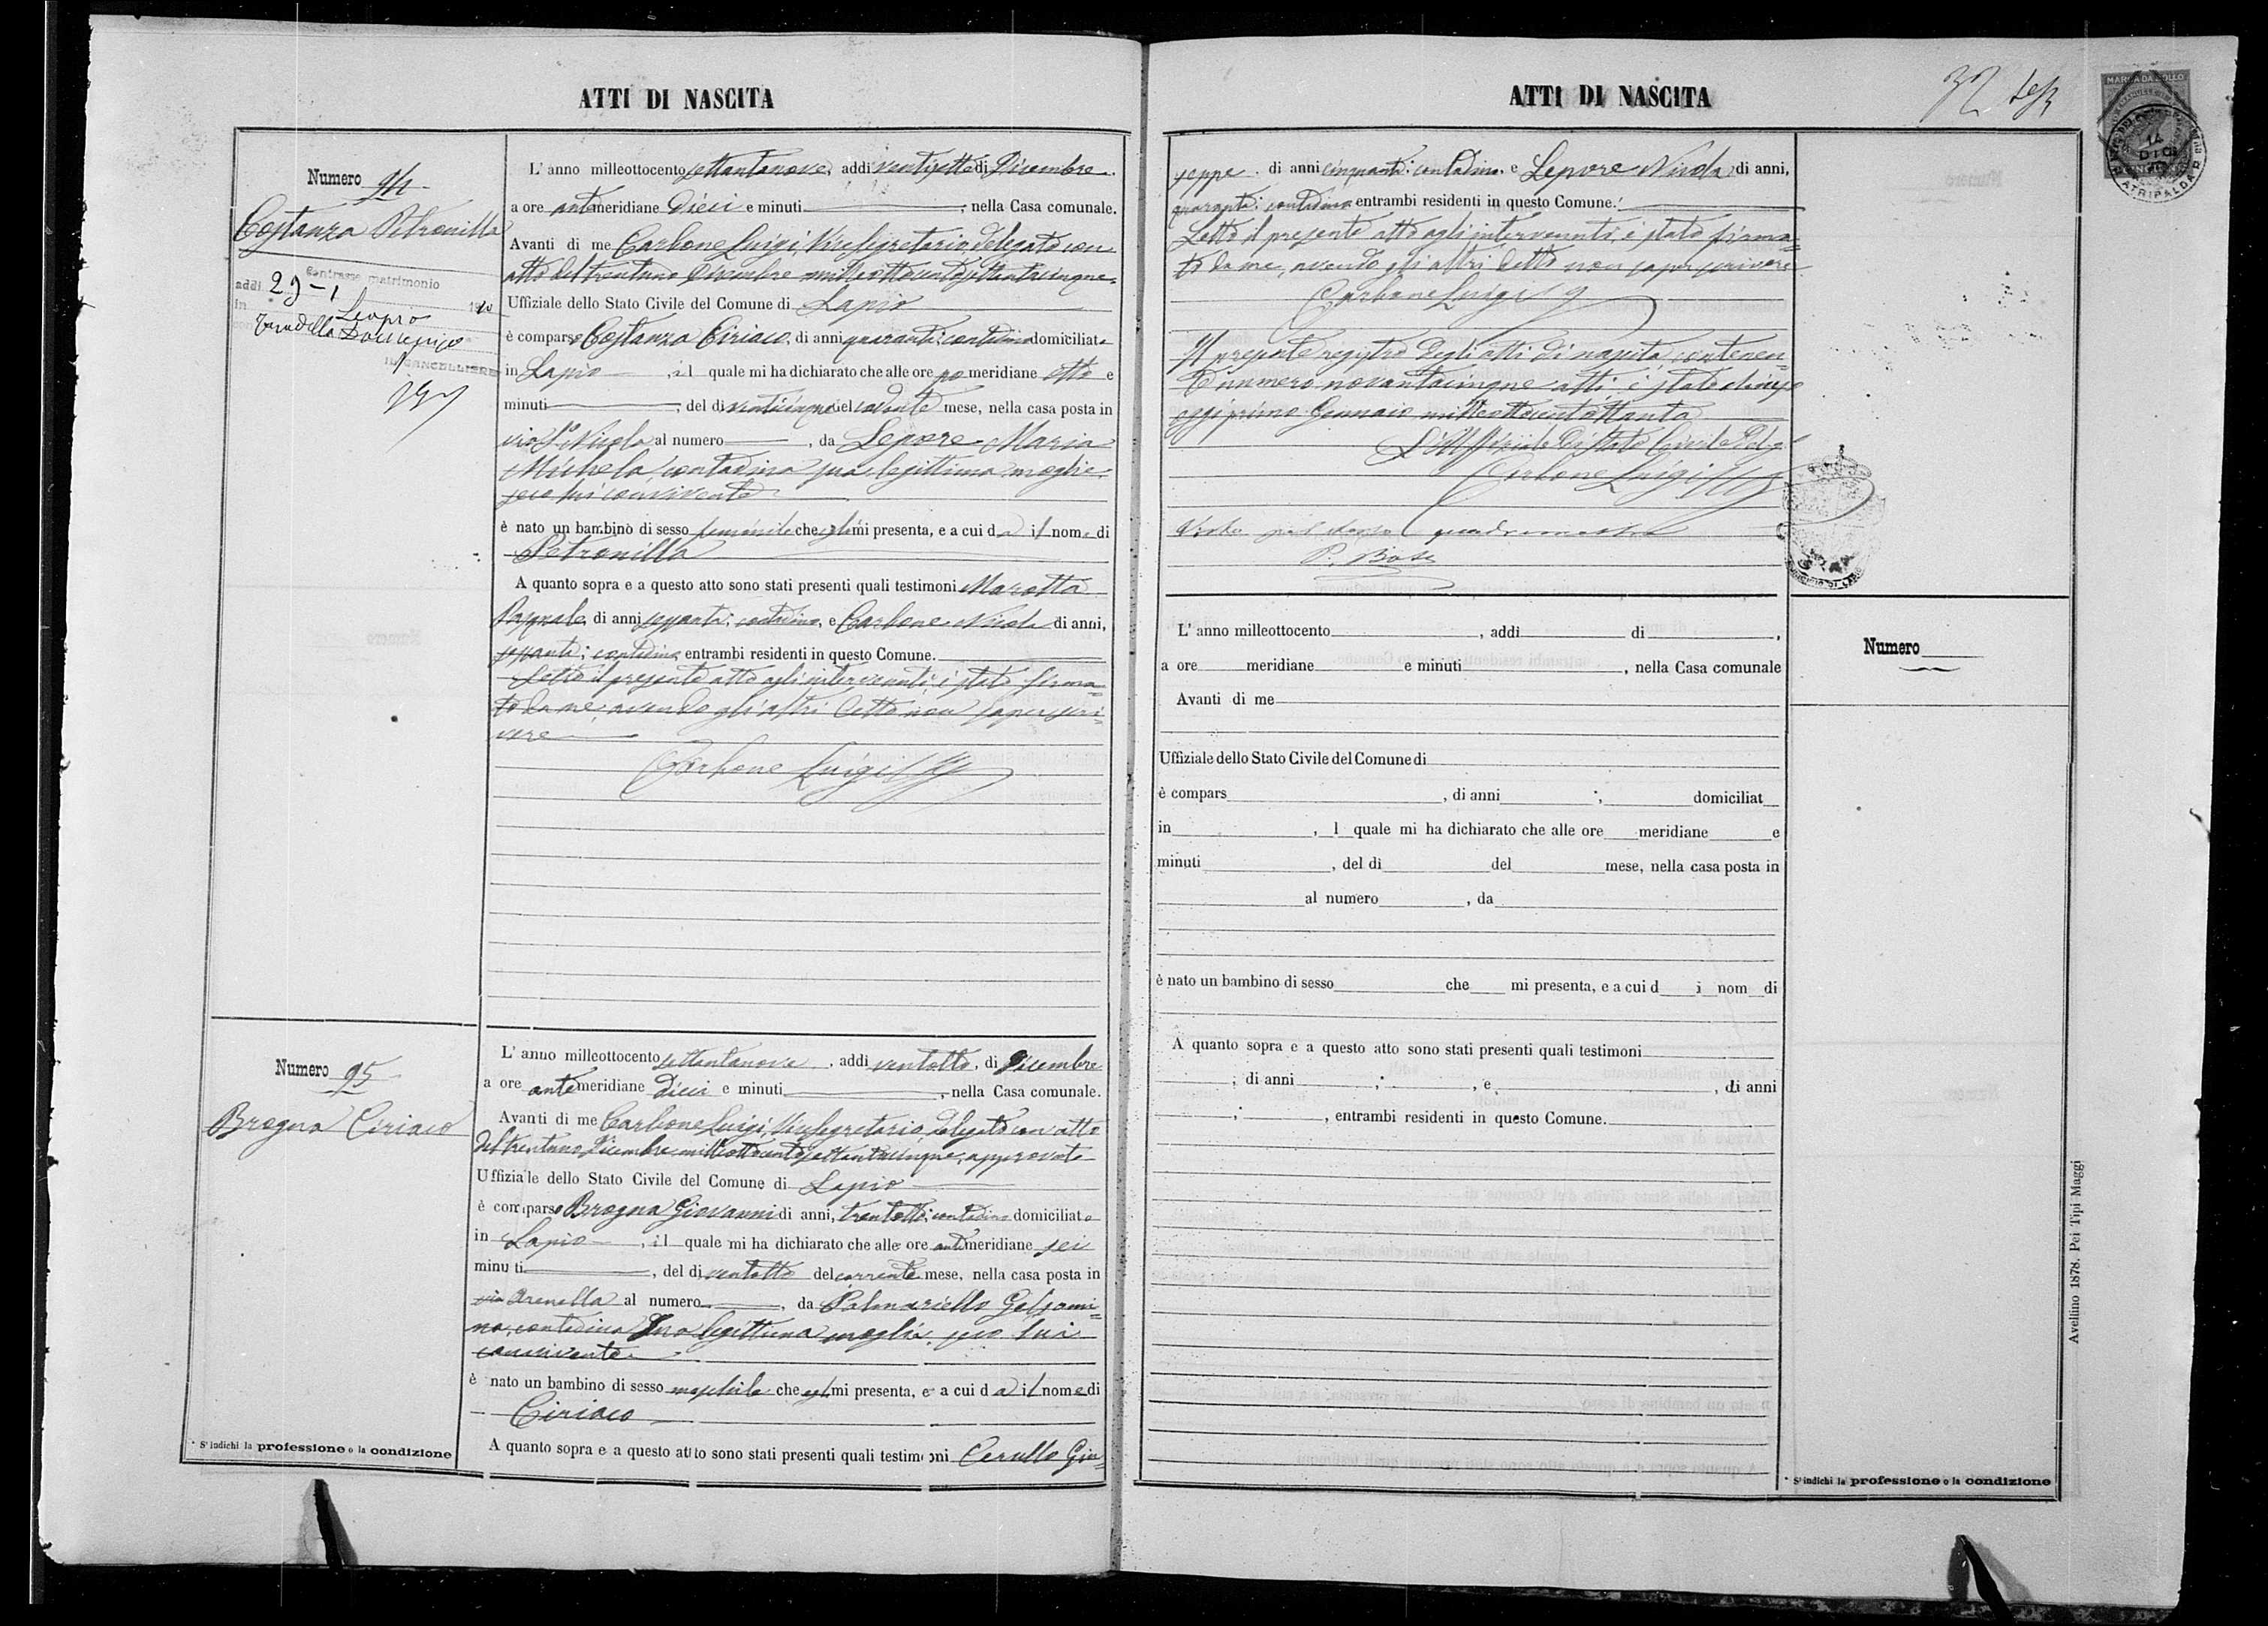 ATTI DI NASCITA
Numero 94
Costanza Petronilla
Contrasse matrimonio
addì 29-1
in
IL CANCELLIERE
L' anno milleottocento settantanove, addì ventisette di Dicembre
a ore antimeridiane dieci e minuti , nella Casa comunale.
Avanti di me Carbone Luigi, Vicesegretario delegato con
atto del trentuno Dicembre milleottocentosettantacinque,
Uffiziale dello Stato Civile del Comune di Lapio
è comparso Costanza Ciriaco, di anni quaranta; contadino domiciliato
in Lapio , il quale mi ha dichiarato che alle ore po meridiane otto e
minuti , del dì venticinque del corrente mese, nella casa posta in
via S. Nicola al numero , da Lepore Maria
Michela, contadina sua legittima moglie
seco lui convivente
è nato un bambino di sesso femminile che egli mi presenta, e a cui dà il nome di
Petronilla
A quanto sopra e a questo atto sono stati presenti quali testimoni Marotta
Pasquale, di anni sessanta; contadino, e Carbone Nicola di anni,
sessanta; contadino, entrambi residenti in questo Comune.
Letto il presente atto agli intervenuti, è stato firma=
to da me, avendo gli altri detto non saper scri=
vere
Carbone Luigi
Numero 95
Brogna Ciriaco
L' anno milleottocento settantanove, addì ventotto, di Dicembre
a ore antemeridiane dieci e minuti , nella Casa comunale.
Avanti di me Carbone Luigi, Vicesegretario, delegato con atto
del trentuno Dicembre milleottocentosettantacinque, approvato
Uffiziale dello Stato Civile del Comune di Lapio
è comparso Brogna Giovanni di anni, trentotto; contadino domiciliato
in Lapio , il quale mi ha dichiarato che alle ore antimeridiane sei
minuti , del dì ventotto del corrente mese, nella casa posta in
via Arenella al numero , da Palmariello Gelsomi=
na, contadina sua legittima moglie, seco lui
convivente
è nato un bambino di sesso maschile che egli mi presenta, e a cui dà il nome di
Ciriaco
A quanto sopra e a questo atto sono stati presenti quali testimoni Cerullo Giu=
* S'indichi la professione o la condizione
ATTI DI NASCITA
32
MARCA DA BOLLO
14
DIC
ATRIPALDA
seppe di anni cinquanta; contadino, e Lepore Nicola di anni,
quaranta; contadino entrambi residenti in questo Comune.
Letto il presente atto agli intervenuti, è stato firma=
to da me, avendo gli altri detto non saper scrivere
Carbone Luigi
Il presente registro degli atti di nascita, contenen=
te numero novantacinque atti, è stato chiuso
oggi primo Gennaio milleottocentottanta
L'Uffiziale di Stato Civile Del.
Carbone Luigi
L' anno milleottocento , addì di ,
a ore meridiane e minuti , nella Casa comunale
Avanti di me
Uffiziale dello Stato Civile del Comune di
è compars , di anni ; domiciliat
in , l quale mi ha dichiarato che alle ore meridiane e
minuti , del dì del mese, nella casa posta in
al numero , da
è nato un bambino di sesso che mi presenta, e a cui d i nom di
A quanto sopra e a questo atto sono stati presenti quali testimoni
, di anni ; , e , di anni
; , entrambi residenti in questo Comune.
Numero
* S'indichi la professione o la condizione
Avellino 1878. Pei Tipi Maggi